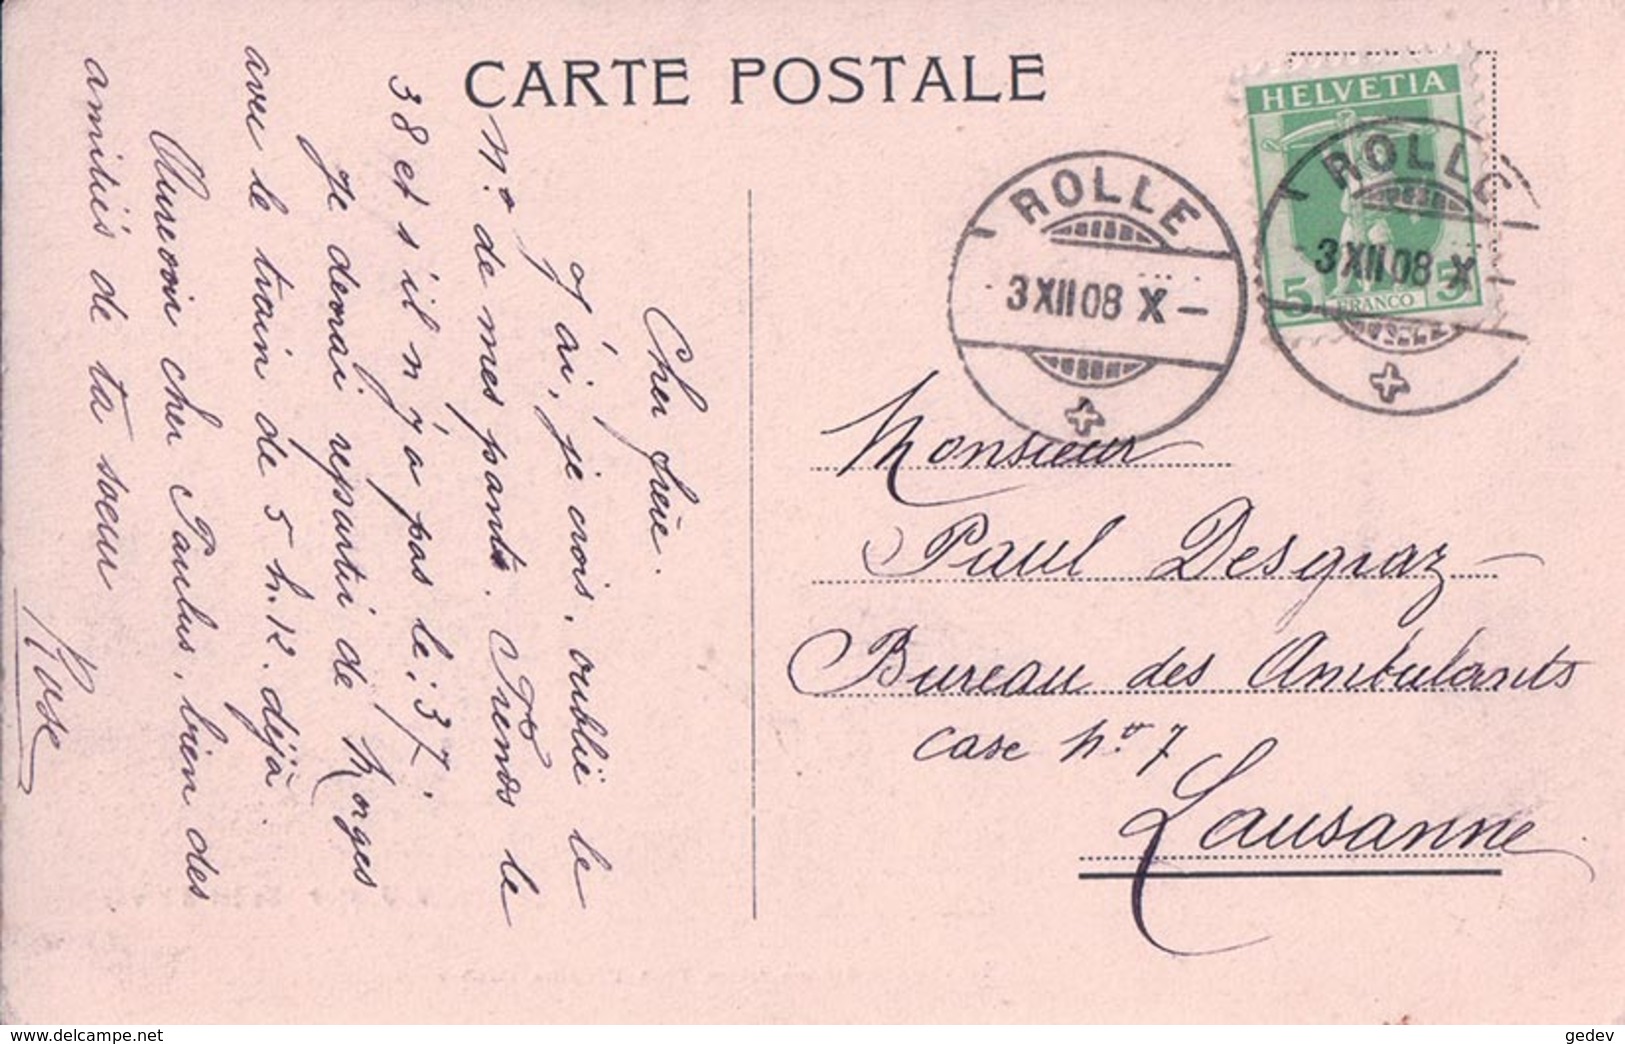 CARTE POSTALE
Cher frère.
J'ai, je crois, oublié le
No de mes pants. Prends le
38 et s'il n'y a pas le: 37.
Je devrai repartir de Morges
avec le train de 5 h. 12. déjà.
Aurevoir cher Paulus, bien des
amitiés de ta soeur
Rose
HELVETIA
5 FRANCO 5
ROLLE
3 XII 08 X –
ROLLE
3 XII 08 X
Monsieur
Paul Desgraz –
Bureau des Ambulants
case No 7
Lausanne
www.delcampe.net
gedev